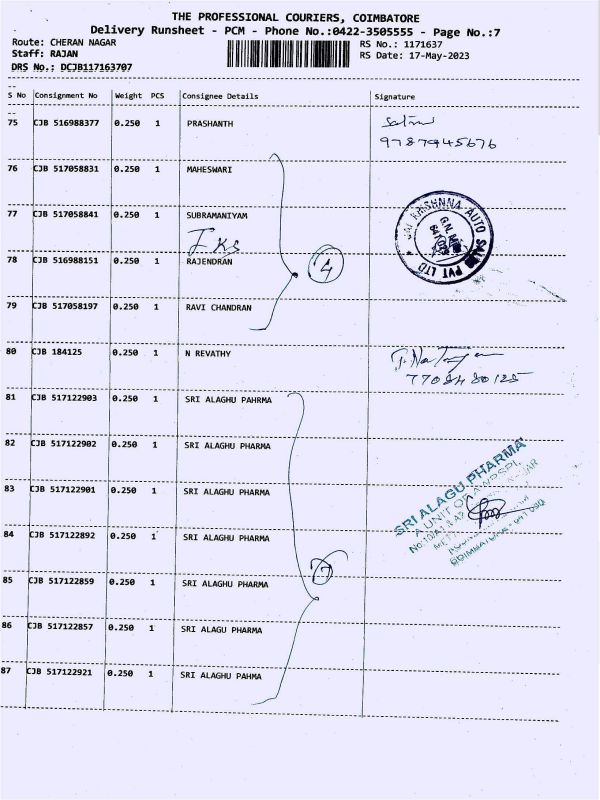 THE PROFESSIONAL COURIERS, COIMBATORE
Delivery Runsheet - PCM - Phone No.:0422-3505555 - Page No.:7
Route: CHERAN NAGAR RS No.: 1171637
Staff: RAJAN RS Date: 17-May-2023
DRS No.: DCJB117163707
S No Consignment No Weight PCS Consignee Details Signature
75 CJB 516988377 0.250 1 PRASHANTH
9787945676
76 CJB 517058831 0.250 1 MAHESWARI
77 CJB 517058841 0.250 1 SUBRAMANIYAM
78 CJB 516988151 0.250 1 RAJENDRAN
4
79 CJB 517058197 0.250 1 RAVI CHANDRAN
80 CJB 184125 0.250 1 N REVATHY
7708480125
81 CJB 517122903 0.250 1 SRI ALAGHU PAHRMA
82 CJB 517122902 0.250 1 SRI ALAGHU PHARMA
83 CJB 517122901 0.250 1 SRI ALAGHU PHARMA
SRI ALAGU PHARMA
A UNIT OF AWPSPL
84 CJB 517122892 0.250 1 SRI ALAGHU PHARMA
85 CJB 517122859 0.250 1 SRI ALAGHU PHARMA
7
86 CJB 517122857 0.250 1 SRI ALAGU PHARMA
87 CJB 517122921 0.250 1 SRI ALAGHU PAHMA